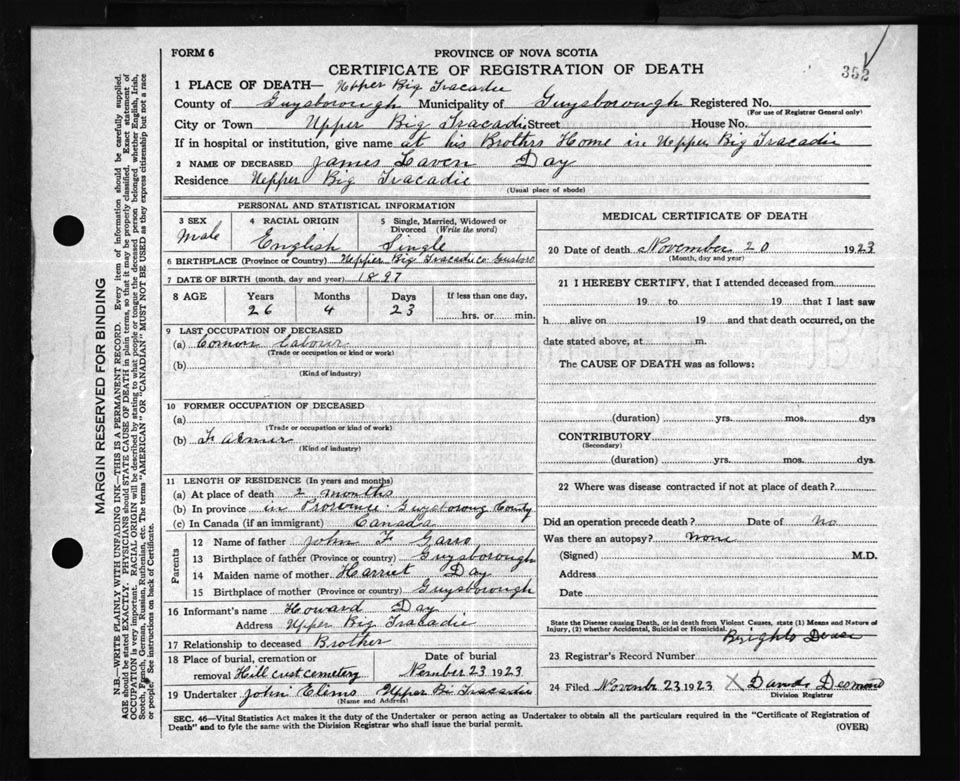 FORM 6
PROVINCE OF NOVA SCOTIA
CERTIFICATE OF REGISTRATION OF DEATH
352
1 PLACE OF DEATH— Upper Big Tracadie
County of Guysborough Municipality of Guysborough Registered No.
(For use of Registrar General only)
City or Town Upper Big Tracadie Street House No.
If in hospital or institution, give name at his Brothrs Home in Upper Big Tracadie
2 NAME OF DECEASED James Laven Day
Residence Upper Big Tracadie
(Usual place of abode)
PERSONAL AND STATISTICAL INFORMATION
3 SEX Male
4 RACIAL ORIGIN English
5 Single, Married, Widowed or Divorced (Write the word) Single
6 BIRTHPLACE (Province or Country) Upper Big Tracadie co
7 DATE OF BIRTH (month, day and year) 1897
8 AGE Years 26 Months 4 Days 23 If less than one day, hrs. or min.
9 LAST OCCUPATION OF DECEASED
(a) Comon Labour
(Trade or occupation or kind or work)
(b)
(Kind of industry)
10 FORMER OCCUPATION OF DECEASED
(a)
(Trade or occupation or kind of work)
(b) Farmer
(Kind of industry)
11 LENGTH OF RESIDENCE (In years and months)
(a) At place of death 2 months
(b) In province in Province County
(c) In Canada (if an immigrant) Canada
Parents
12 Name of father John F
13 Birthplace of father (Province or country) Guysborough
14 Maiden name of mother Harriet Day
15 Birthplace of mother (Province or country) Guysborough
16 Informant's name Howard Day
Address Upper Big Tracadie
17 Relationship to deceased Brother
18 Place of burial, cremation or removal Hill crest cemetery
Date of burial 23 1923
19 Undertaker John Upper Tracadie
(Name and Address)
MEDICAL CERTIFICATE OF DEATH
20 Date of death November 20 1923
(Month, day and year)
21 I HEREBY CERTIFY, that I attended deceased from
19 to 19 that I last saw
h alive on 19 and that death occurred, on the
date stated above, at m.
The CAUSE OF DEATH was as follows:
(duration) yrs. mos. dys
CONTRIBUTORY
(Secondary)
(duration) yrs. mos. dys.
22 Where was disease contracted if not at place of death?
Did an operation precede death? Date of no
Was there an autopsy? none
(Signed) M.D.
Address
Date
State the Disease causing Death, or in death from Violent Causes, state (1) Means and Nature of
Injury, (2) whether Accidental, Suicidal or Homicidal.
Brights
23 Registrar's Record Number
24 Filed 23 1923 X Desmond
Division Registrar
SEC. 46—Vital Statistics Act makes it the duty of the Undertaker or person acting as Undertaker to obtain all the particulars required in the "Certificate of Registration of
Death" and to fyle the same with the Division Registrar who shall issue the burial permit.
(OVER)
MARGIN RESERVED FOR BINDING
N.B.—WRITE PLAINLY WITH UNFADING INK—THIS IS A PERMANENT RECORD. Every item of information should be carefully supplied.
AGE should be stated EXACTLY. PHYSICIANS should STATE CAUSE OF DEATH in plain terms, so that it may be properly classified. Exact statement of
OCCUPATION is very important. RACIAL ORIGIN will be described by stating to what people or tongue the deceased person belonged whether English, Irish,
Scotch, French, German, Russian, Ruthenian, etc. The terms "AMERICAN" OR "CANADIAN" MUST NOT BE USED as they express citizenship but not a race
or people. See instructions on back of Certificate.